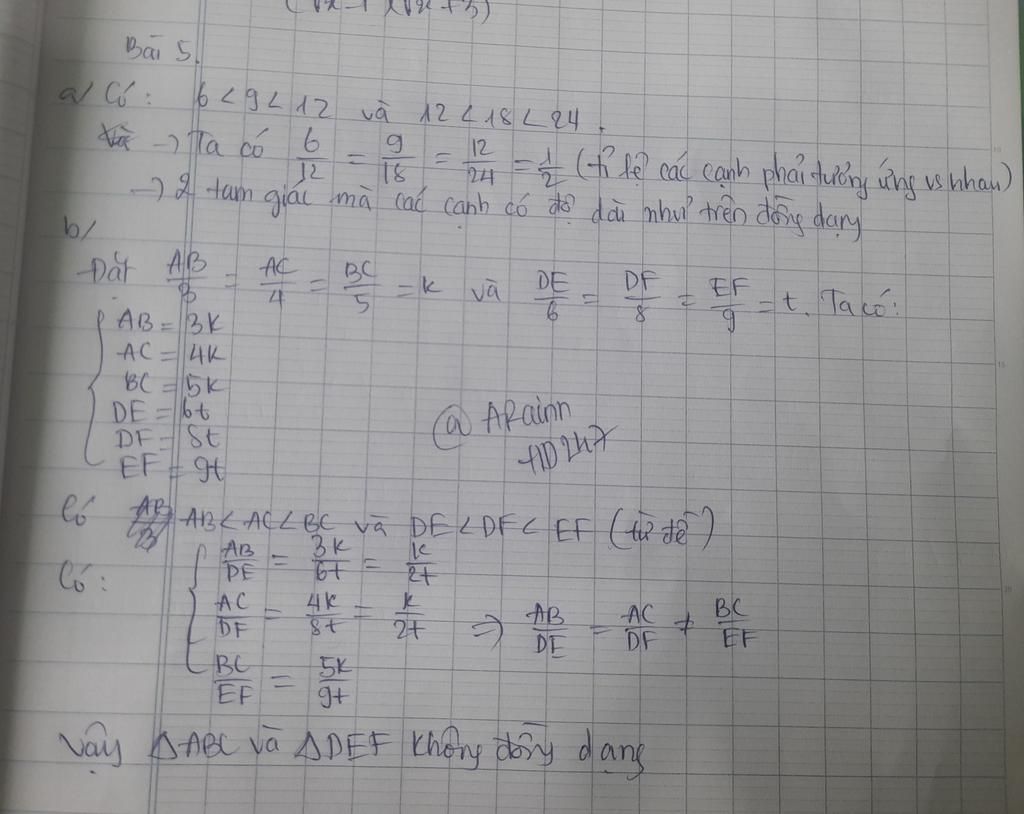 (√x-1)(√x+3)
Bài 5
a/ Có: 6 < 9 < 12 và 12 < 18 < 24.
→ Ta có 6/12 = 9/18 = 12/24 = 1/2 (tỉ lệ các cạnh phải tương ứng vs nhau)
→ 2 tam giác mà các cạnh có độ dài như trên đồng dạng
b/
Đặt AB/3 = AC/4 = BC/5 = k và DE/6 = DF/8 = EF/9 = t. Ta có:
AB = 3k
AC = 4k
BC = 5k
DE = 6t
DF = 8t
EF = 9t
@ ARainn
HD247
Có AB < AC < BC và DE < DF < EF (từ đề)
Có: AB/DE = 3k/6t = k/2t
AC/DF = 4k/8t = k/2t ⇒ AB/DE = AC/DF ≠ BC/EF
BC/EF = 5k/9t
Vậy ΔABC và ΔDEF không đồng dạng